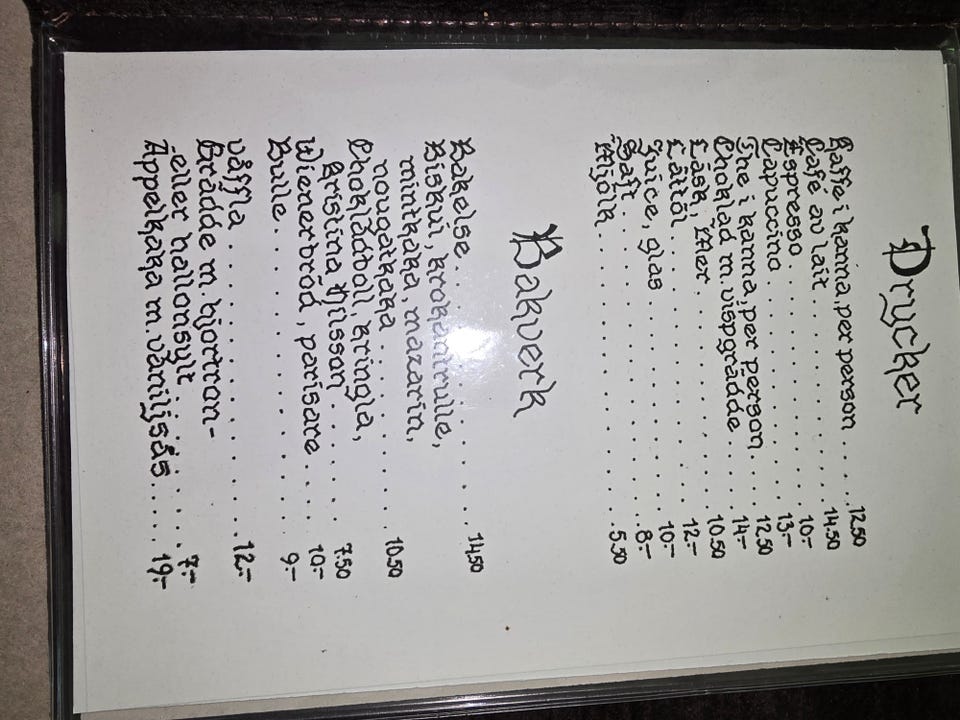 Drycker
Kaffe i kanna, per person . . . 12.50
Cafe au lait . . . . . . . . 14.50
Espresso . . . . . . . . . 10:-
Capucino . . . . . . . . . 13:-
The i kanna, per person . . . 12.50
Choklad m. vispgrädde . . . . 14:-
Läsk, Mer . . . . . . . . . 10.50
Lättöl . . . . . . . . . . 12:-
Juice, glas . . . . . . . . 10:-
Saft . . . . . . . . . . . 8:-
Mjölk . . . . . . . . . . 5.50
Bakverk
Bakelse . . . . . . . . . 14.50
Biskvi, krokantrulle,
mintkaka, mazarin,
nougatkaka . . . . . . . . 10.50
Chokladboll, kringla,
Kristina Nilsson . . . . . . 7.50
Wienerbröd, parisare . . . . 10:-
Bulle . . . . . . . . . . . 9:-
Våffla . . . . . . . . . . 12:-
Grädde m. hjortron-
eller hallonsylt . . . . . 7:-
Äppelkaka m. vaniljsås . . . . 19:-